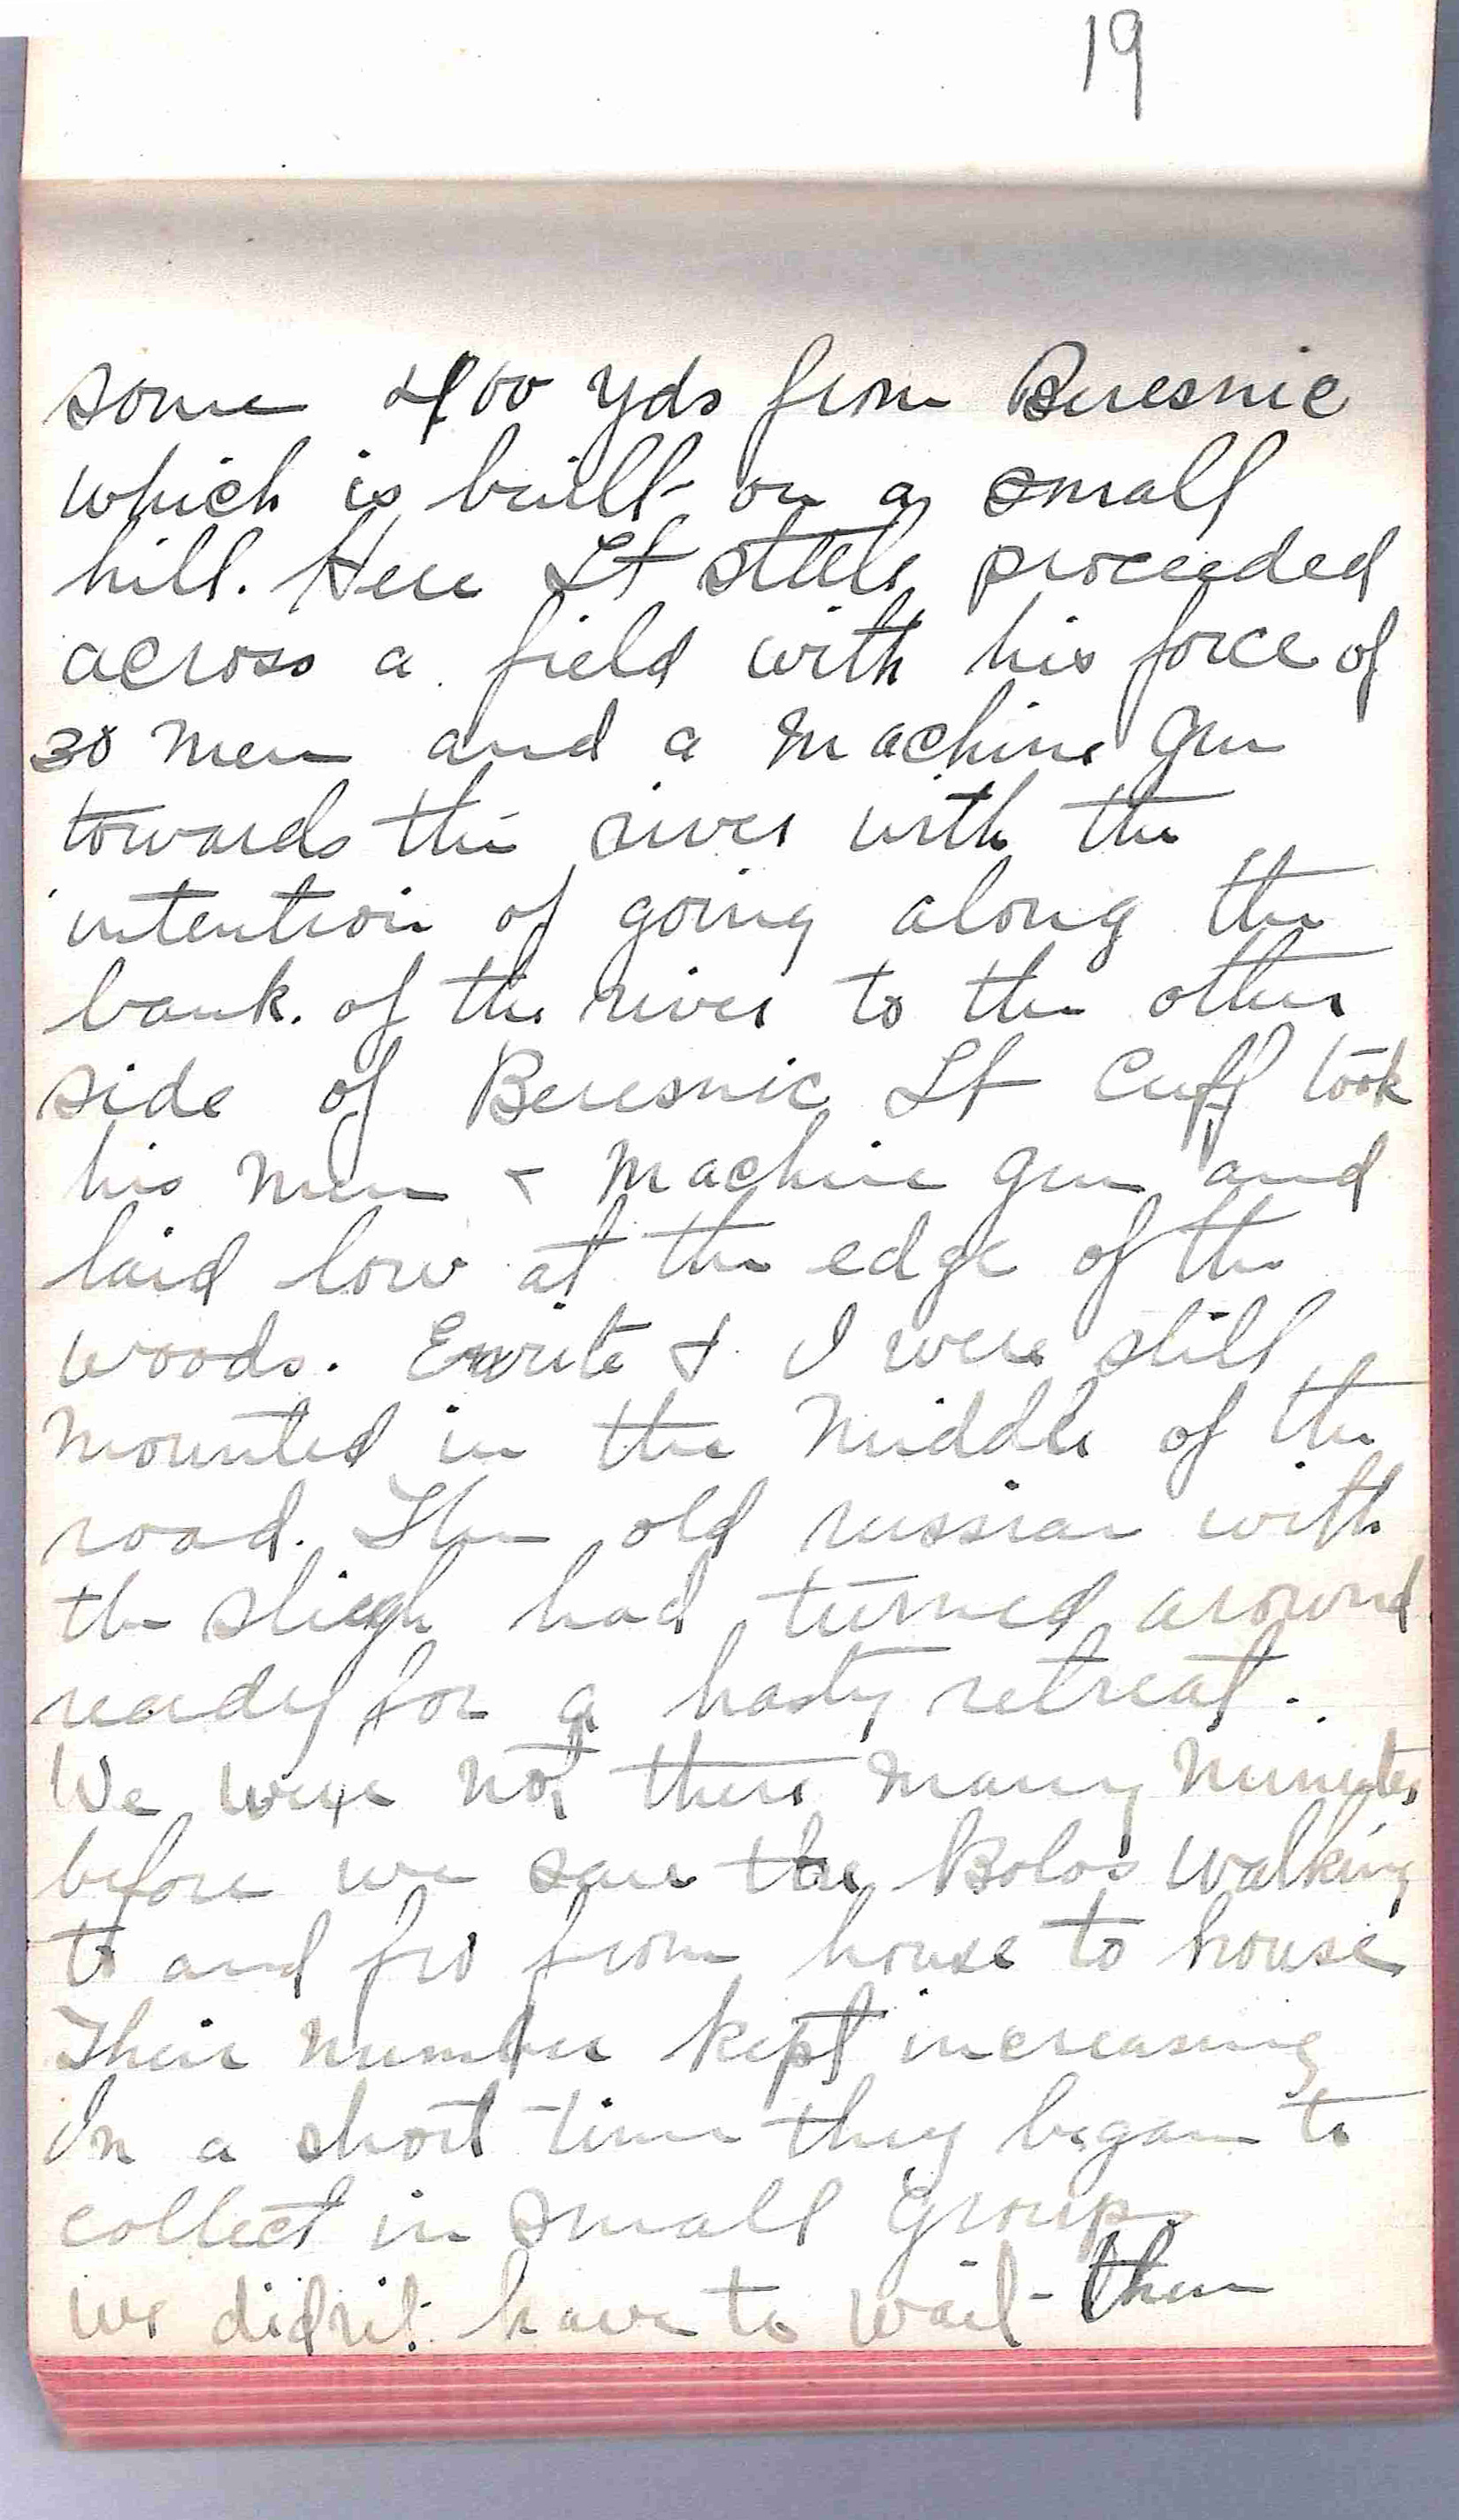 19
some 400 yds from Beresnic
which is built on a small
hill. Here Lt Steele proceeded
across a field with his force of
30 men and a machine gun
towards the river with the
intention of going along the
bank. of the river to the other
side of Beresnic Lt Cuff took
his men & machine gun and
laid low at the edge of the
woods. & I were still
mounted in the middle of the
road. The old russian with
the sliegh had turned around
ready for a hasty retreat.
We were not there many minutes
before we saw the Bolos walking
to and fro from house to house
Their number kept increasing
In a short time they began to
collect in small groups
we didn't have to wait then